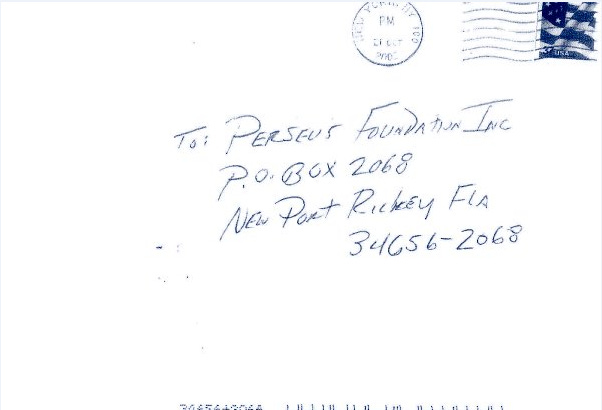 PM
21 OCT
USA
To: PERSEUS FOUNDATION INC
P.O. BOX 2068
NEW PORT RICKEY FLA
34656-2068